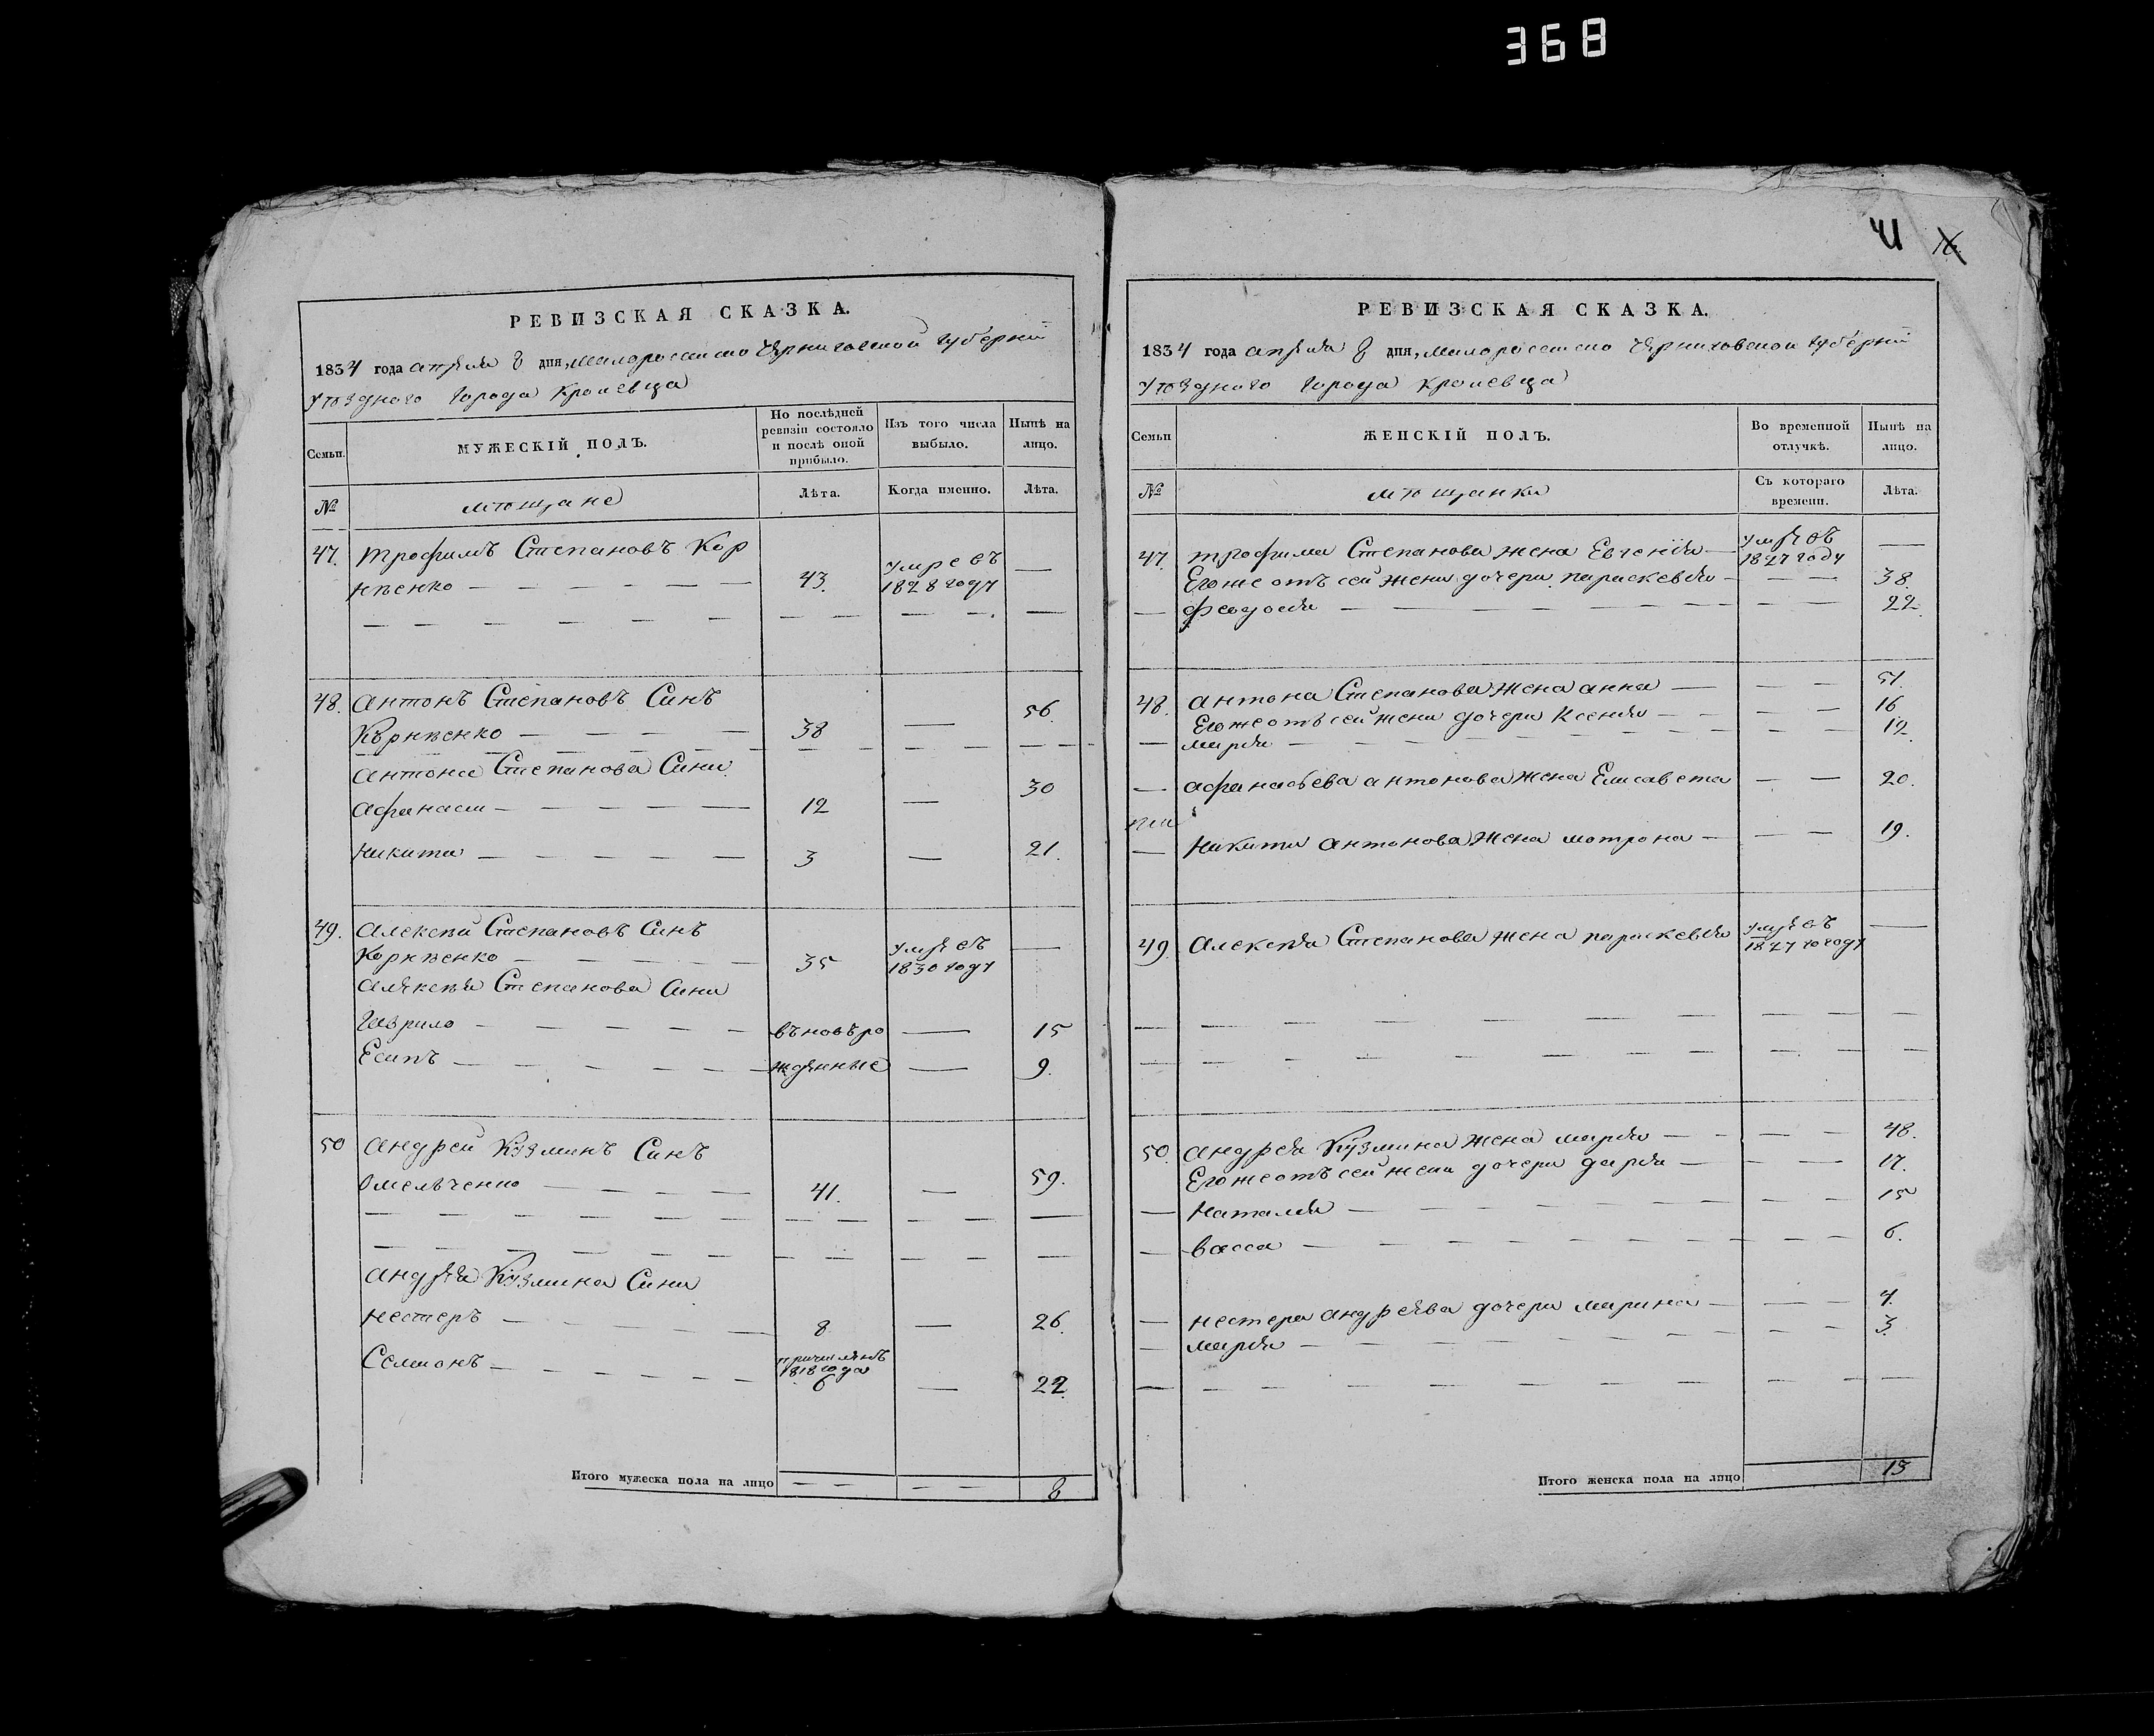 368
41
16
РЕВИЗСКАЯ СКАЗКА.
1834 года апреля 8 дня, Малороссийско Черниговской губернii
уѣздного города Кролевца
Семьи.
МУЖЕСКIЙ ПОЛЪ.
По послѣдней ревизiи состояло и послѣ оной прибыло.
Изъ того числа выбыло.
Нынѣ на лицо.
№
мѣщане
Лѣта.
Когда именно.
Лѣта.
47. Трофимъ Степановъ Кор
нѣенко — 43. умре въ 1828 году —
48. Антонъ Степановъ Синъ
Корнѣенко — 38 — 56.
Антона Степанова Сини
Афанасий — 12 — 30
Никита — 3 — 21.
49. Алексѣй Степановъ Синъ
Корнѣенко — 35 умре въ 1830 году —
Алексѣя Степанова Сини
Гаврило — въновъро — 15
Есипъ — жденные — 9.
50 Андрей Кузминъ Синъ
Омелѣченко — 41. — 59.
Андрея Кузмина Сини
Нестеръ — 8 — 26.
Семионъ — причисленъ 1818 года 6 — 22.
Итого мужеска пола на лицо — — 8
РЕВИЗСКАЯ СКАЗКА.
1834 года апреля 8 дня, Малороссийско Черниговской губернii
уѣздного города Кролевца
Семьи
ЖЕНСКIЙ ПОЛЪ.
Во временной отлучкѣ.
Нынѣ на лицо.
№
мѣщанки
Съ котораго времени.
Лѣта.
47. Трофима Степанова жена Евгенiя — умре въ 1827 году —
Его же отъ сей жени дочери Параскевiя — 38.
— Феодосiя — 22.
48. Антона Степанова жена Анна — 51.
Его же отъ сей жени дочери Ксенiя — 16
— Марiя — 12.
— Афанасьева Антонова жена Елисавета — 20.
— Никити Антонова жена Мотрона — 19.
49. Алексѣя Степанова жена Параскевiя умре въ 1827 году —
50. Андрея Кузмина жена Марiя — 48.
Его же отъ сей жени дочери Дарiя — 17.
— Наталiя — 15
— Васса — 6.
— Нестера Андреева дочери Марина — 4.
— Марiя — 3.
Итого женска пола на лицо 13